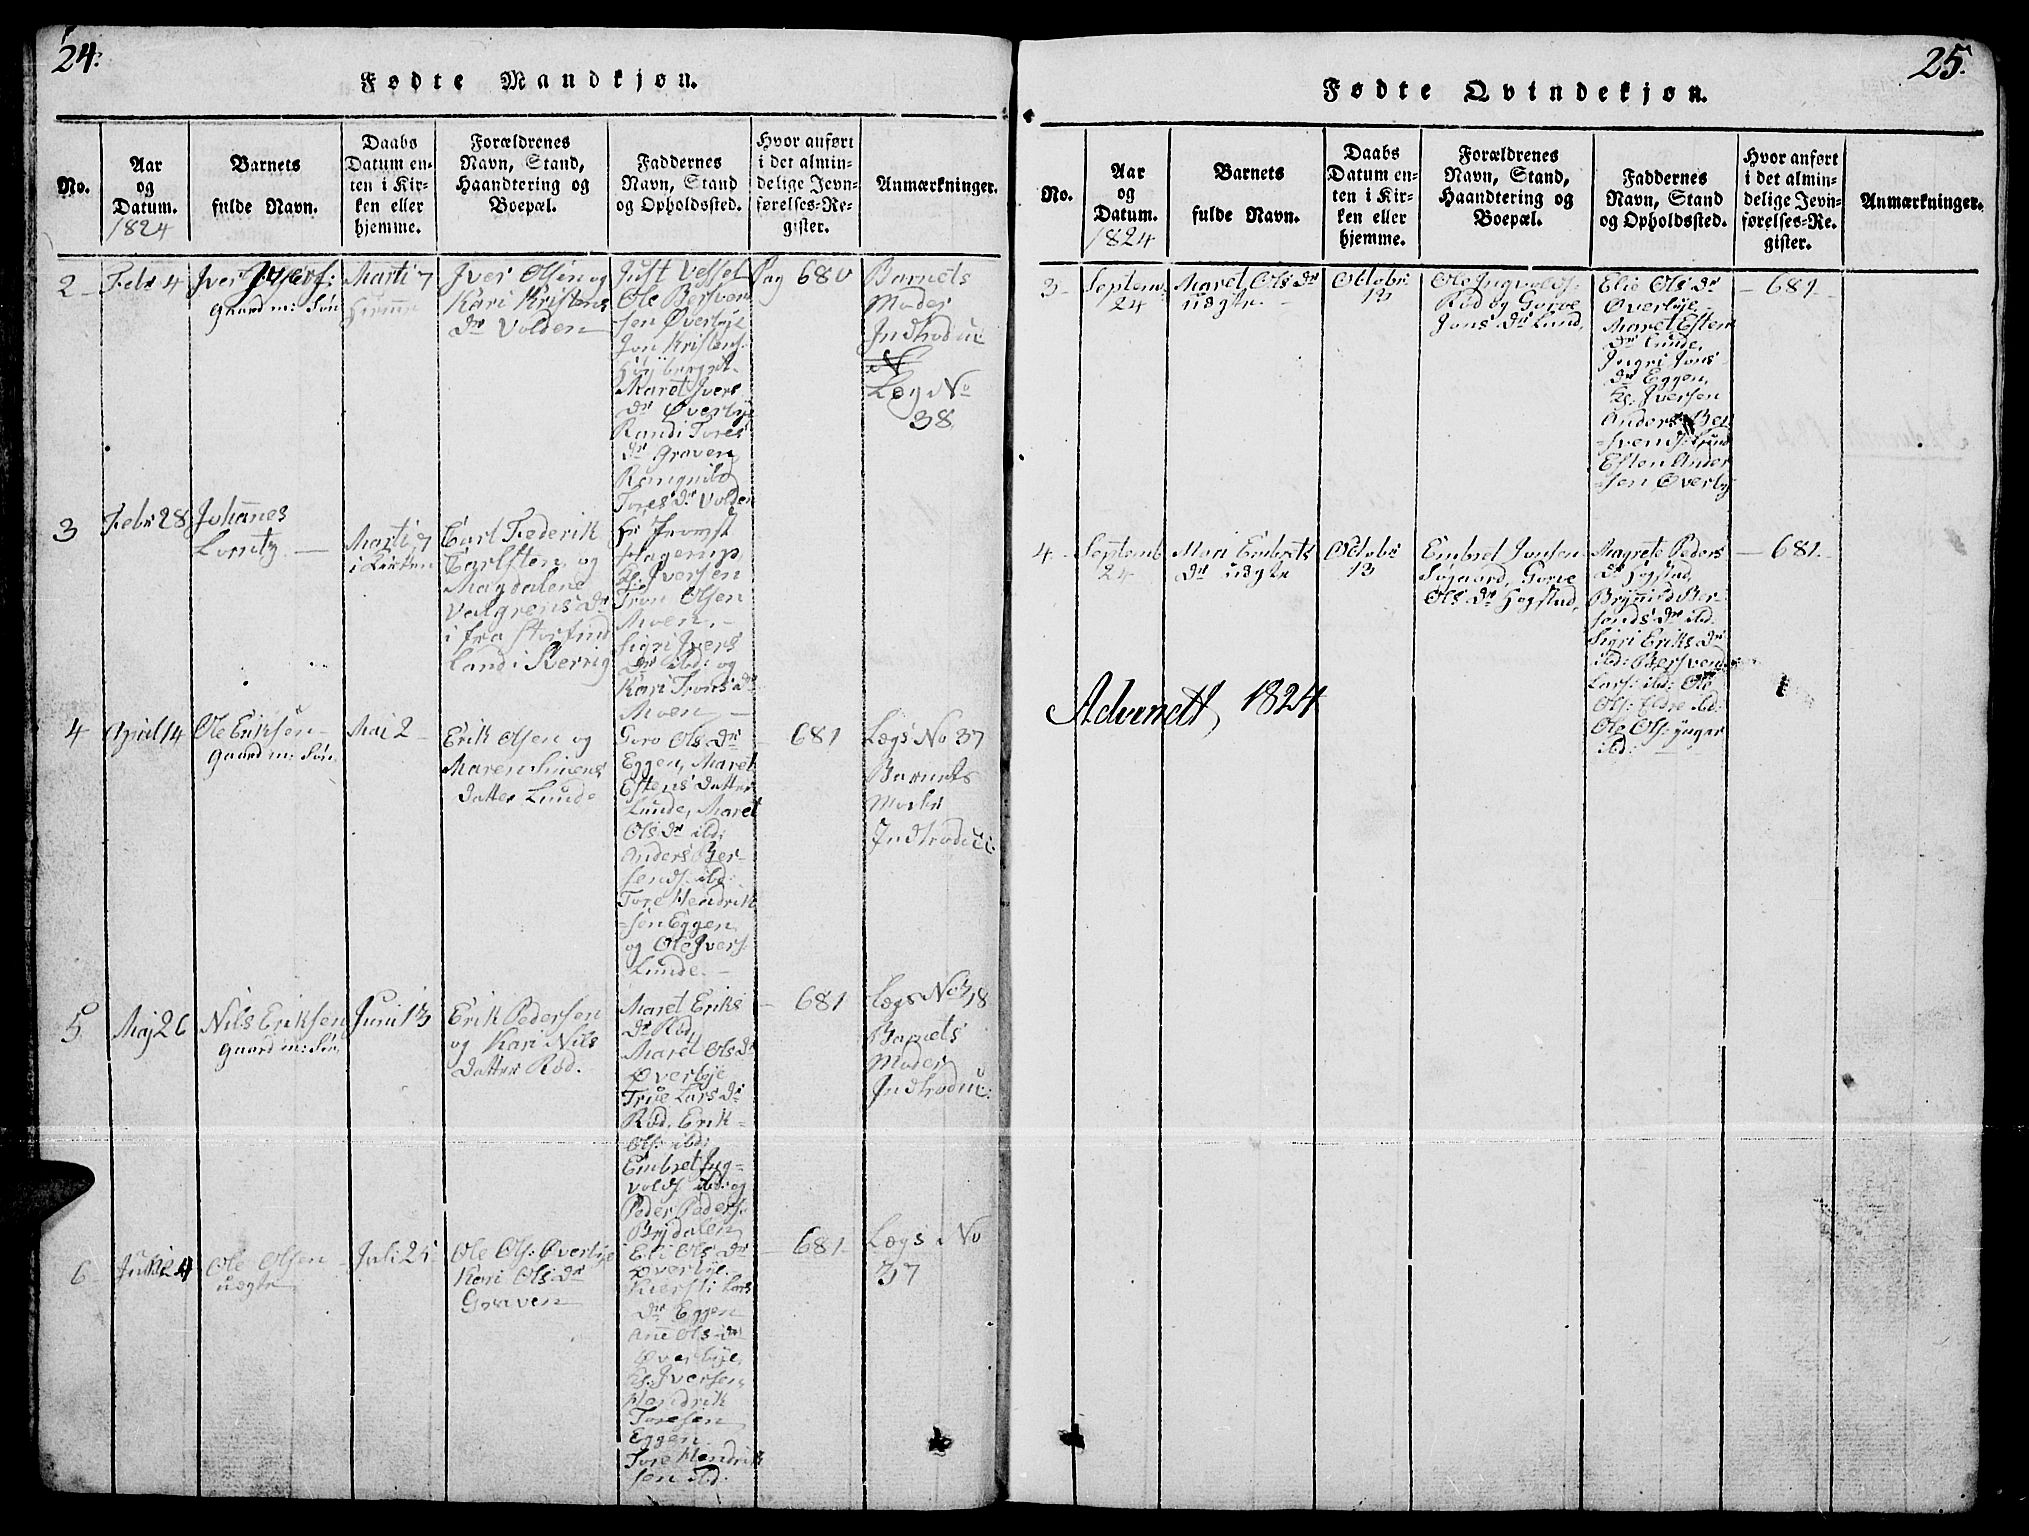 24.
Fødte Mandkjøn.
No.
Aar
og
Datum.
1824
Barnets
fulde Navn.
Daabs
Datum en-
ten i Kir-
ken eller
hjemme.
Forældrenes
Navn, Stand,
Haandtering og
Boepæl.
Faddernes
Navn, Stand
og Opholdssted.
Hvor anført
i det almin-
delige Jevn-
førelses-Re-
gister.
Anmærkninger.
2
Febr 4
Iver
Gaardm: Søn
Marti 7
Iver Olsen og
Kari Kristens
Dr Volden
Just Vessel
Ole Bersven
sen Øverbye
Jon Kristens.
Maret Ivers
Dr Øverbye
Randi Tores
Dr Graven
Rangnild
Tores Dr Volden
Pag 680
Barnets
Moder
Indtroduc
Læg No
38
3
Febr 28
Johannes
Lorntz
Marti 7
i Kirken
Carl Frederik
Carlsten og
Magdalene
Valgrens Dr
i fra
Land i Sverrig
Hr Provst
Hagerup
Iversen
Tron Olsen
Moen
Sigri Ivers
Dr ibd: og
Kari Trons Dr
Moen
4
April 14
Ole Eriksen
Gaardm: Søn
Mai 2
Erik Olsen og
Maren Simens
Datter Lunde
Goro Ols Dr
Eggen, Maret
Estens Datter
Lunde, Maret
Ols Dr ibd:
Anders Ber-
sends. ibd:
Tore Hendrik
sen Eggen
og Ole Ivers.
Lunde.
681
Lægs No 37
Barnets
Moder
Indtroduc:
5
Maj 26
Nils Eriksen
Gaardm: Søn
Juni 13
Erik Pedersen
og Kari Nils
Datter Rød.
Maret Eriks
Dr Rød,
Maret Ols Dr
Øverbye
True Lars Dr
Rød, Erik
Ols: ibd:
Embret Ing-
volds. ibd: og
Peder Peders.
Brydalen
681
Lægs No 38
Barnets
Moder
Indtroduc:
6
Ole Olsen
uægte
Juli 25
Ole Ols: Øverbye
Kari Ols Dr
Graven
Eli Ols Dr
Øverbye
Kiersti Lars
Dr Eggen
Ane Ols Dr
Øverbye,
Iversen,
Hendrik
Toresen
Eggen
Tore Hendrik
sen ibd:
681
Lægs No
37
25.
Fødte Qvindekjøn.
No.
Aar
og
Datum.
1824
Barnets
fulde Navn.
Daabs
Datum en-
ten i Kir-
ken eller
hjemme.
Forældrenes
Navn, Stand,
Haandtering og
Boepæl.
Faddernes
Navn, Stand
og Opholdssted.
Hvor anført
i det almin-
delige Jevn-
førelses-Re-
gister.
Anmærkninger.
3
Septem:
24
Maret Ols Dr
uægte
Octobr:
13
Ole Ingvolds:
Rød og Gorve
Jons Dr Lund,
Elie Ols Dr
Øverbye,
Maret Esten
Dr Lunde,
Ingri Jons
Dr Eggen,
Iversen
Anders Ber
svends: Lund
Esten Ander
sen Øverby
681
4
Septemb
24
Mari Embrets
Dr uægte
Octobr:
13
Embret Jonsen
Søgaard, Gorve
Ols Dr Hogstad,
Magrete Peders
Dr Hogstad,
Brynild Ber-
sends Dr ibd.
Sigri Eriks Dr
ibd: Bersvend
Lars: ibd: Ole
Ols: Eldre ibd:
Ole Ols: yngre
ibd:
681
Advendt, 1824